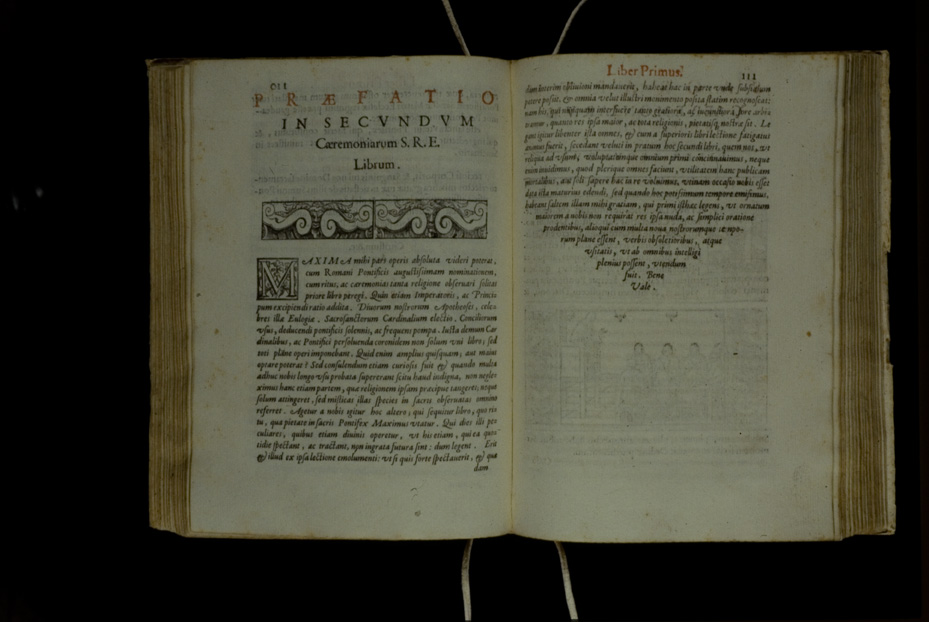 PRÆFATIO
IN SECVNDVM
Cæremoniarum S. R. E.
Librum.
MAXIMA mihi pars operis absoluta videri poterat,
cum Romani Pontificis augustissimam nominationem,
cum ritus, ac cæremonias tanta religione obseruari solitas
priore libro peregi. Quin etiam Imperatoris, ac Princi
pum excipiendi ratio addita. Diuorum nostrorum Apotheosis, cele-
bres illa Eulogia. Sacrosanctorum Cardinalium electio. Conciliorum
vsus, deducendi pontificis solennis, ac frequens pompa. Iusta demum Car
dinalibus, ac Pontifici persoluenda coronidem non solum vni libro; sed
toti plane operi imponebant. Quid enim amplius quisquam, aut maius
optare poterat? Sed consulendum etiam curiosis fuit & quando multa
adhuc nobis longo vsu probata supererant scitu haud indigna, non negle-
ximus hanc etiam partem, quæ religionem ipsam præcipue tangeret; neque
solum attingeret, sed misticas illas species in sacris obseruatas omnino
referret. Agetur a nobis igitur hoc altero, qui sequitur libro, quo ritu
tu, qua pietate in sacris Pontifex Maximus vtatur. Qui dies illi pe
culiares, quibus etiam diuinis operetur, vt his etiam, qui ea quo
tidie spectant, ac tractant, non ingrata futura sint: dum legent. Erit
& illud ex ipsa lectione emolumenti: vt si quis forte spectauerit, & quæ
dam
Liber Primus.
111
dam interim obliuioni mandauerit, habeat hac in parte vnde subsidium
petere possit. & omnia velut illustri monumento posita statim recognoscat;
nam his, qui nusquam interfuere tanto gratiora, ac iucundiora fore arbi
tramur, quanto res ipsa maior, ac tota religionis, pietatisq; nostræ sit. Le
gant igitur libenter ista omnes, & cum a superioris libri lectione fatigatus
animus fuerit, secedant veluti in pratum hoc secundi libri, quem nos, vt
reliqua ad vsum, voluptatemque omnium primi concinnauimus, neque
enim inuidimus, quod plerique omnes faciunt, vtilitatem hanc publicam
mortalibus, aut soli sapere hac in re voluimus, vtinam occasio nobis esset
data ista maturius edendi, sed quando hoc potissimum tempore emisimus,
habeant saltem illam mihi gratiam, qui primi isthæc legent, vt ornatum
maiorem a nobis non requirat res ipsa nuda, ac simplici oratione
prodentibus, alioqui cum multa noua, nostrorumque tempo-
rum plane essent, verbis obsoletioribus, atque
vsitatis, vt ab omnibus intelligi
plenius possent, vtendum
fuit. Bene
Vale.